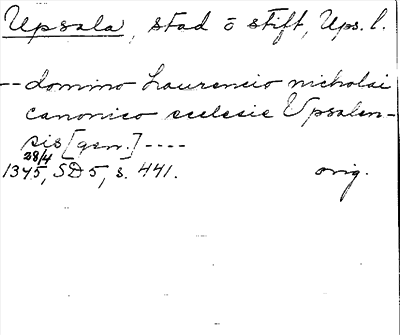 Upsala, stad o stift, Ups. l.
-- domino Laurencio nicholai
canonico ecclesie Upsalen-
sis [gen.] ----
28/4
1345, SD 5, s. 441. orig.